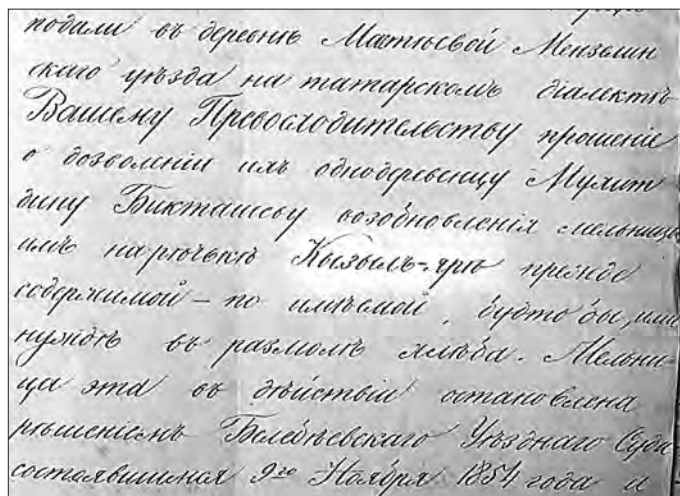 подали въ деревнѣ Матѣевой Мензелин
скаго уѣзда на татарскомъ діалектѣ
Вашему Превосходительству прошеніе
о дозволеніи ихъ однодеревенцу Мухит
дину Бикташеву возобновленія мельницы
имъ на рѣчкѣ Кызылъ-ярѣ прежде
содержимой – по имѣемой, будто бы, ими
нуждѣ въ размолѣ хлѣба. Мельни-
ца эта въ дѣйствіи остановлена
рѣшеніемъ Белебѣевскаго Уѣзднаго Суда
состоявшимся 9го Ноября 1854 года и